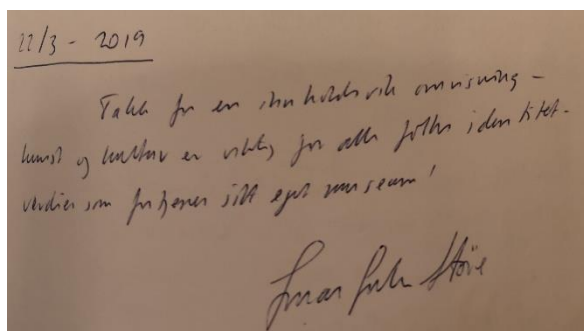 22/3 - 2019
Takk for en innholdsrik omvisning -
kunst og kultur er viktig for alle folks identitet -
verdier som fortjener sitt eget museum!
Jonas Gahr Støre